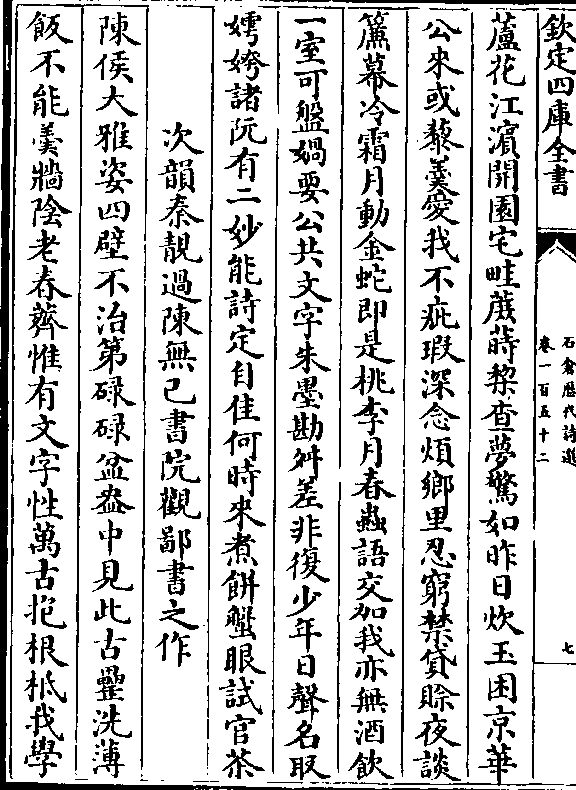 欽定四庫全書
石倉歷代詩選
卷一百五十二
七
蘆花江濱開園宅畦蔬蒔棃查夢驚如昨日炊玉困京華
公來或藜羹愛我不疵瑕深念煩鄉里忍窮禁貸賒夜談
簾幕冷霜月動金蛇即是桃李月春蟲語交加我亦無酒飲
一室可盤媧要公共文字朱墨勘舛差非復少年日聲名取
嫮姱諸阮有二妙能詩定自佳何時來煮餅蟹眼試官茶
次韻秦覯過陳無己書院觀鄙書之作
陳侯大雅姿四壁不治第碌碌盆盎中見此古罍洗薄
飯不能羹牆陰老春薺惟有文字性萬古抱根柢我學